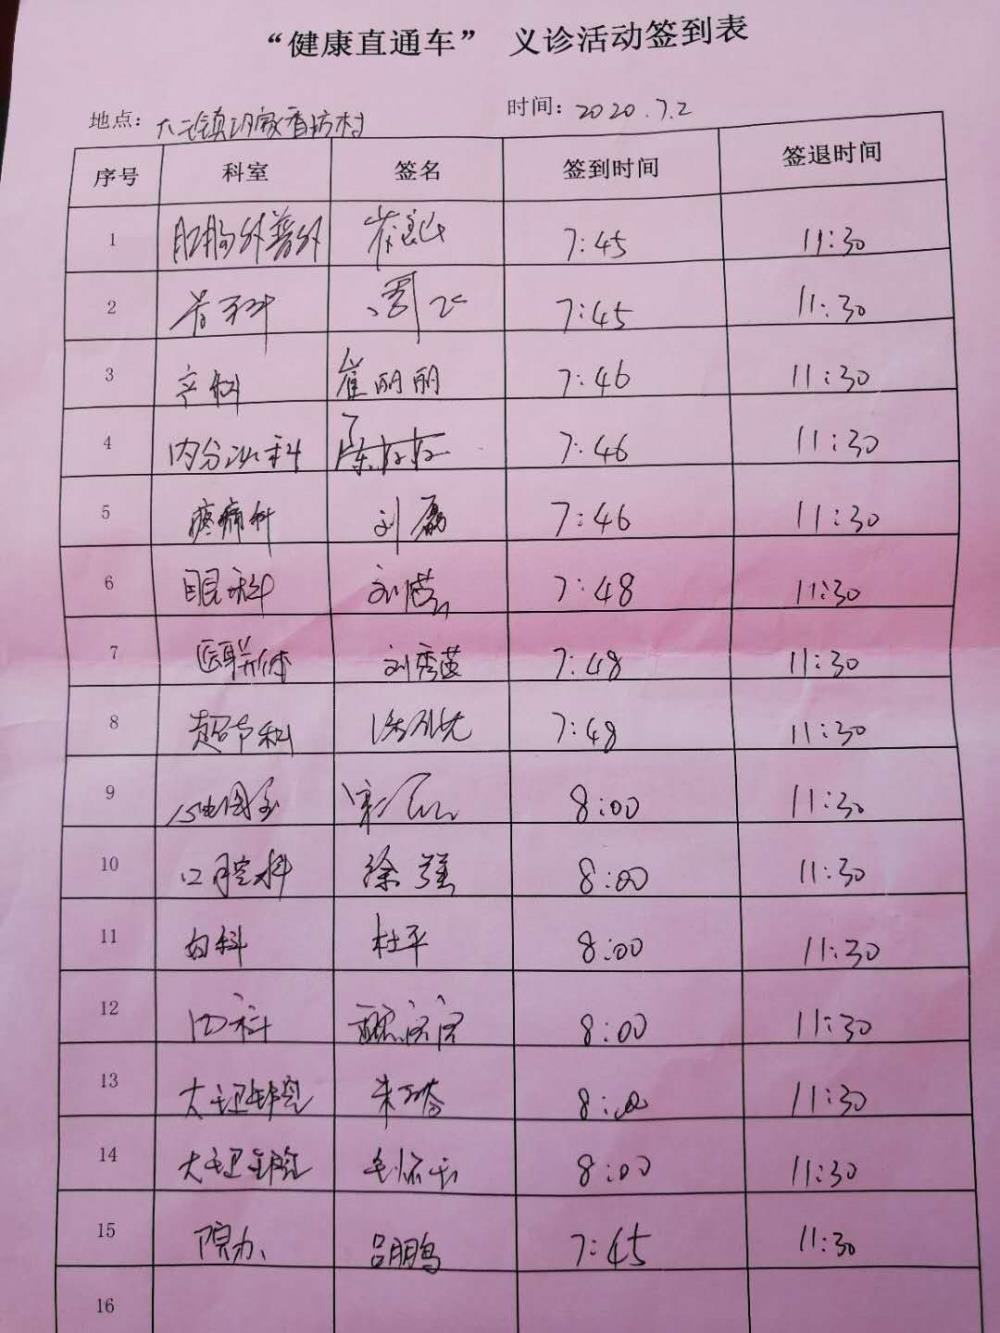 “健康直通车” 义诊活动签到表
地点: 时间: 2020.7.2
序号 科室 签名 签到时间 签退时间
1 肛肠外普外 7:45 11:30
2 骨科 周 7:45 11:30
3 产科 崔丽丽 7:46 11:30
4 内分泌科 陈 7:46 11:30
5 疼痛科 刘磊 7:46 11:30
6 眼科 刘 7:48 11:30
7 医联体 刘秀英 7:48 11:30
8 超声科 7:48 11:30
9 心电图室 8:00 11:30
10 口腔科 徐强 8:00 11:30
11 内科 杜平 8:00 11:30
12 内科 8:00 11:30
13 大王卫生院 朱 8:00 11:30
14 大王卫生院 毛 8:00 11:30
15 院办 吕鹏鸟 7:45 11:30
16